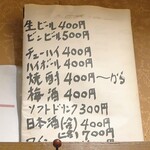 生ビール400円
ビンビール500円
チューハイ400円
ハイボール400円
焼酎400円～から
梅酒400円
ソフトドリンク300円
日本酒(合)400円
700円